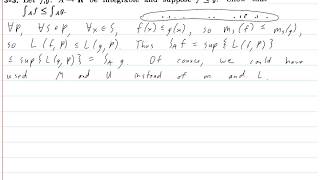 Let f,g: A → R be integrable and suppose f ≤ g. Show that
∫_A f ≤ ∫_A g.
∀P, ∀S∈P, ∀x∈S, f(x) ≤ g(x), so m_S(f) ≤ m_S(g),
so L(f,P) ≤ L(g,P). Thus ∫_A f = sup{L(f,P)}
≤ sup{L(g,P)} = ∫_A g. Of course, we could have
used M and U instead of m and L.